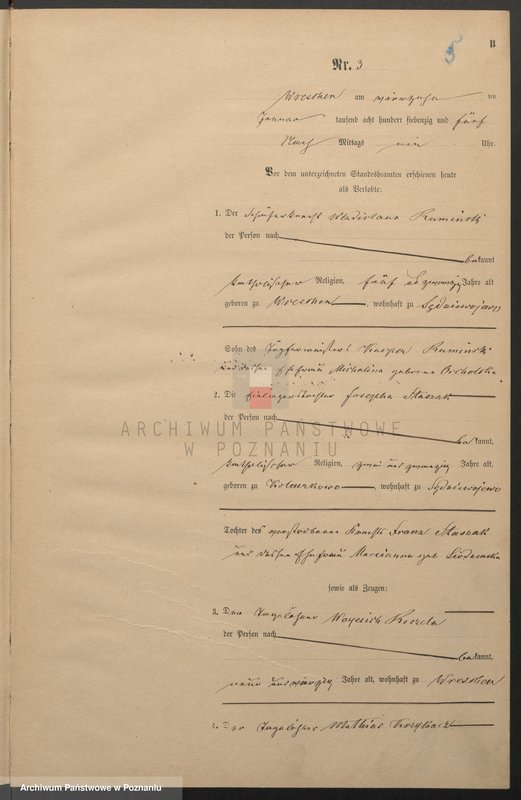 B
5
Nr. 3
Wreschen am vierzehn ten
Januar tausend acht hundert siebenzig und fünf
Nach Mittags ein Uhr.
Vor dem unterzeichneten Standesbeamten erschienen heute
als Verlobte:
1. Der Wladislaus Kaminski
der Person nach
bekannt
katholischer Religion, fünf und zwanzig Jahre alt
geboren zu Wreschen, wohnhaft zu Sędziwojewo
Sohn des Töpfermeisters Kaspar Kaminski
und dessen Ehefrau Michalina geborene
2. Die Josepha Stassak
der Person nach
bekannt,
katholischer Religion, zwei und zwanzig Jahre alt,
geboren zu Kołaczkowo, wohnhaft zu Sędziwojewo
Tochter des verstorbenen Knechts Franz Stassak
und dessen Ehefrau Marianna geb.
sowie als Zeugen:
3. Der Tagelöhner Woyciech
der Person nach
bekannt,
neun und vierzig Jahre alt, wohnhaft zu Wreschen
4. Der Tagelöhner Mathias
ARCHIWUM PAŃSTWOWE
W POZNANIU
Archiwum Państwowe w Poznaniu